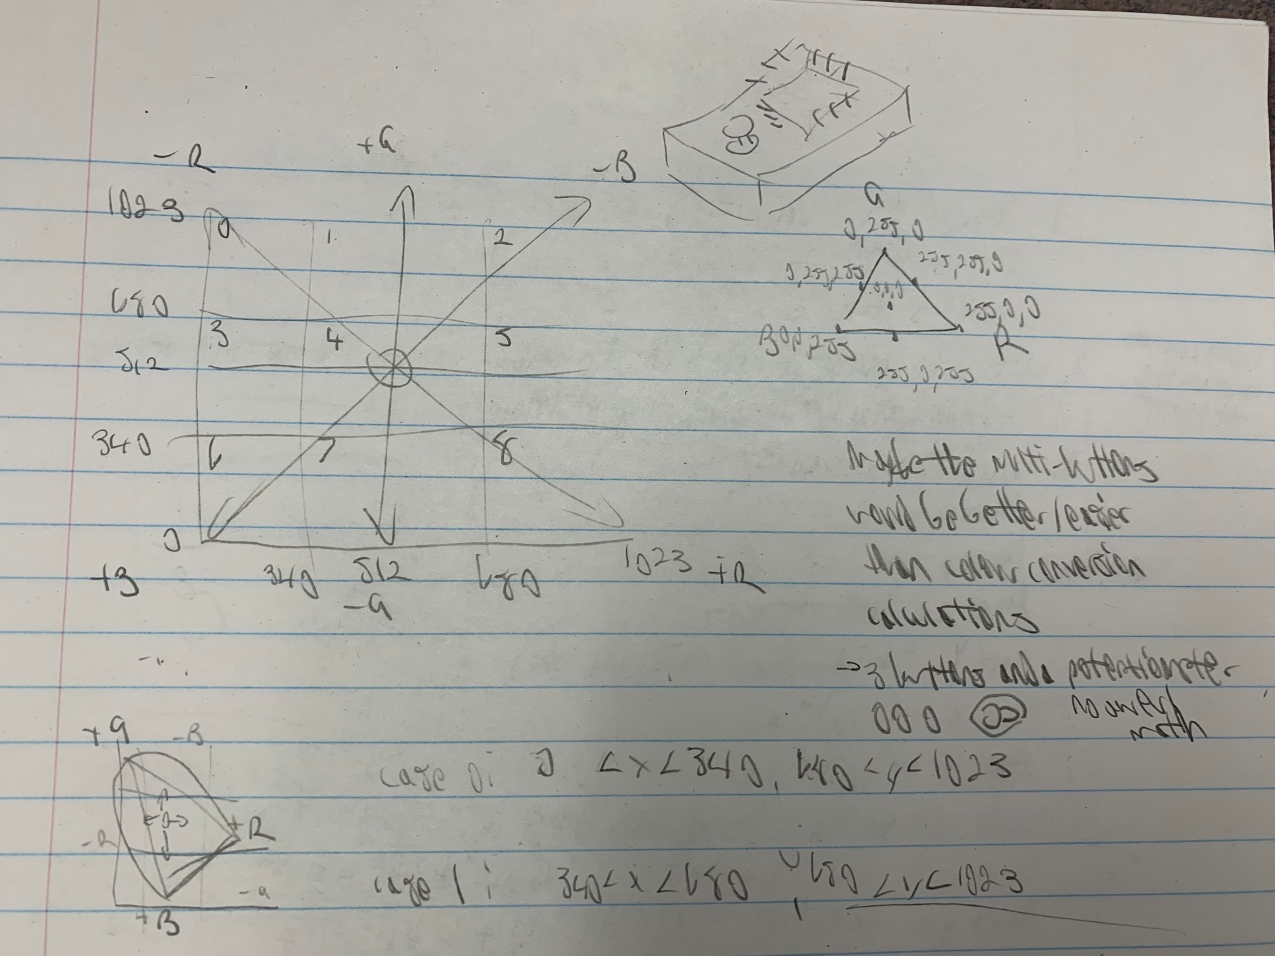 -R +G -B
1023 0 1 2
680 3 4 5
512
340 6 7 8
0
+B 340 512 680 1023 +R
-G
G
0,255,0
0,255,255 255,255,0
0,0,0
255,0,0
B 0,0,255 R
255,0,255
Maybe the multi-buttons
would be better/easier
than colour conversion
calculations
→ 3 buttons and a potentiometer
000 no awkward
math
+G -B
-R +R
-G
+B
case 0: 0 <x<340, 680<y<1023
case 1: 340<x<680 , 680 <y<1023